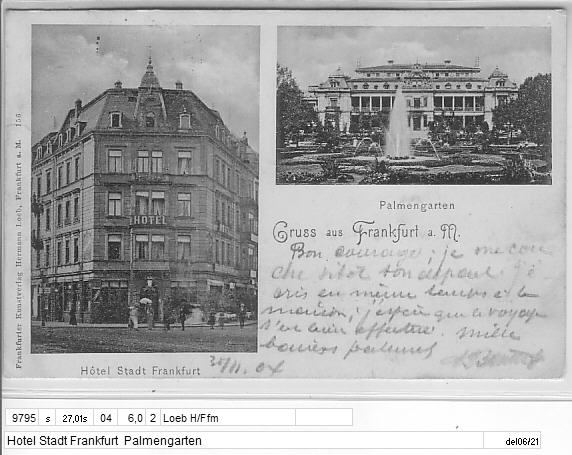 Frankfurter Kunstverlag Hermann Loeb, Frankfurt a. M. 156
HOTEL
Hôtel Stadt Frankfurt
Palmengarten
Gruss aus Frankfurt a. M.
Bon courage; je me cou
che sitôt son départ. J'é
cris en même temps à la
maison; j'espère que le voyage
s'est bien effectué. Mille
baisers
04
9795 s 27,01s 04 6,0 2 Loeb H/Ffm
Hotel Stadt Frankfurt Palmengarten
del06/21